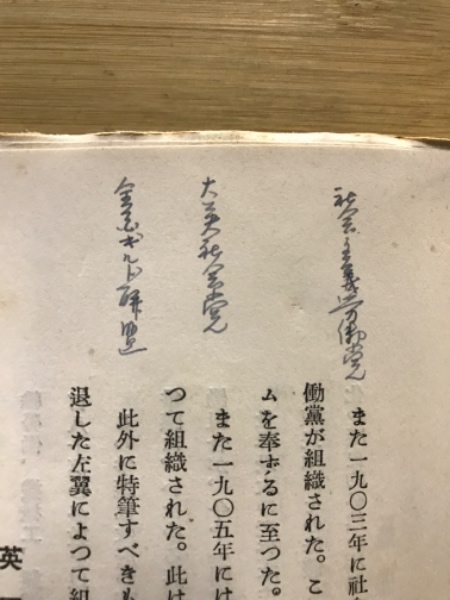 社会主義労働党
大英社会党
全国ギルド聯盟
また一九〇三年に社
働黨が組織された。こ
ムを奉ずるに至つた。
また一九〇五年には
つて組織された。此は
此外に特筆すべきも
退した左翼によつて組
英